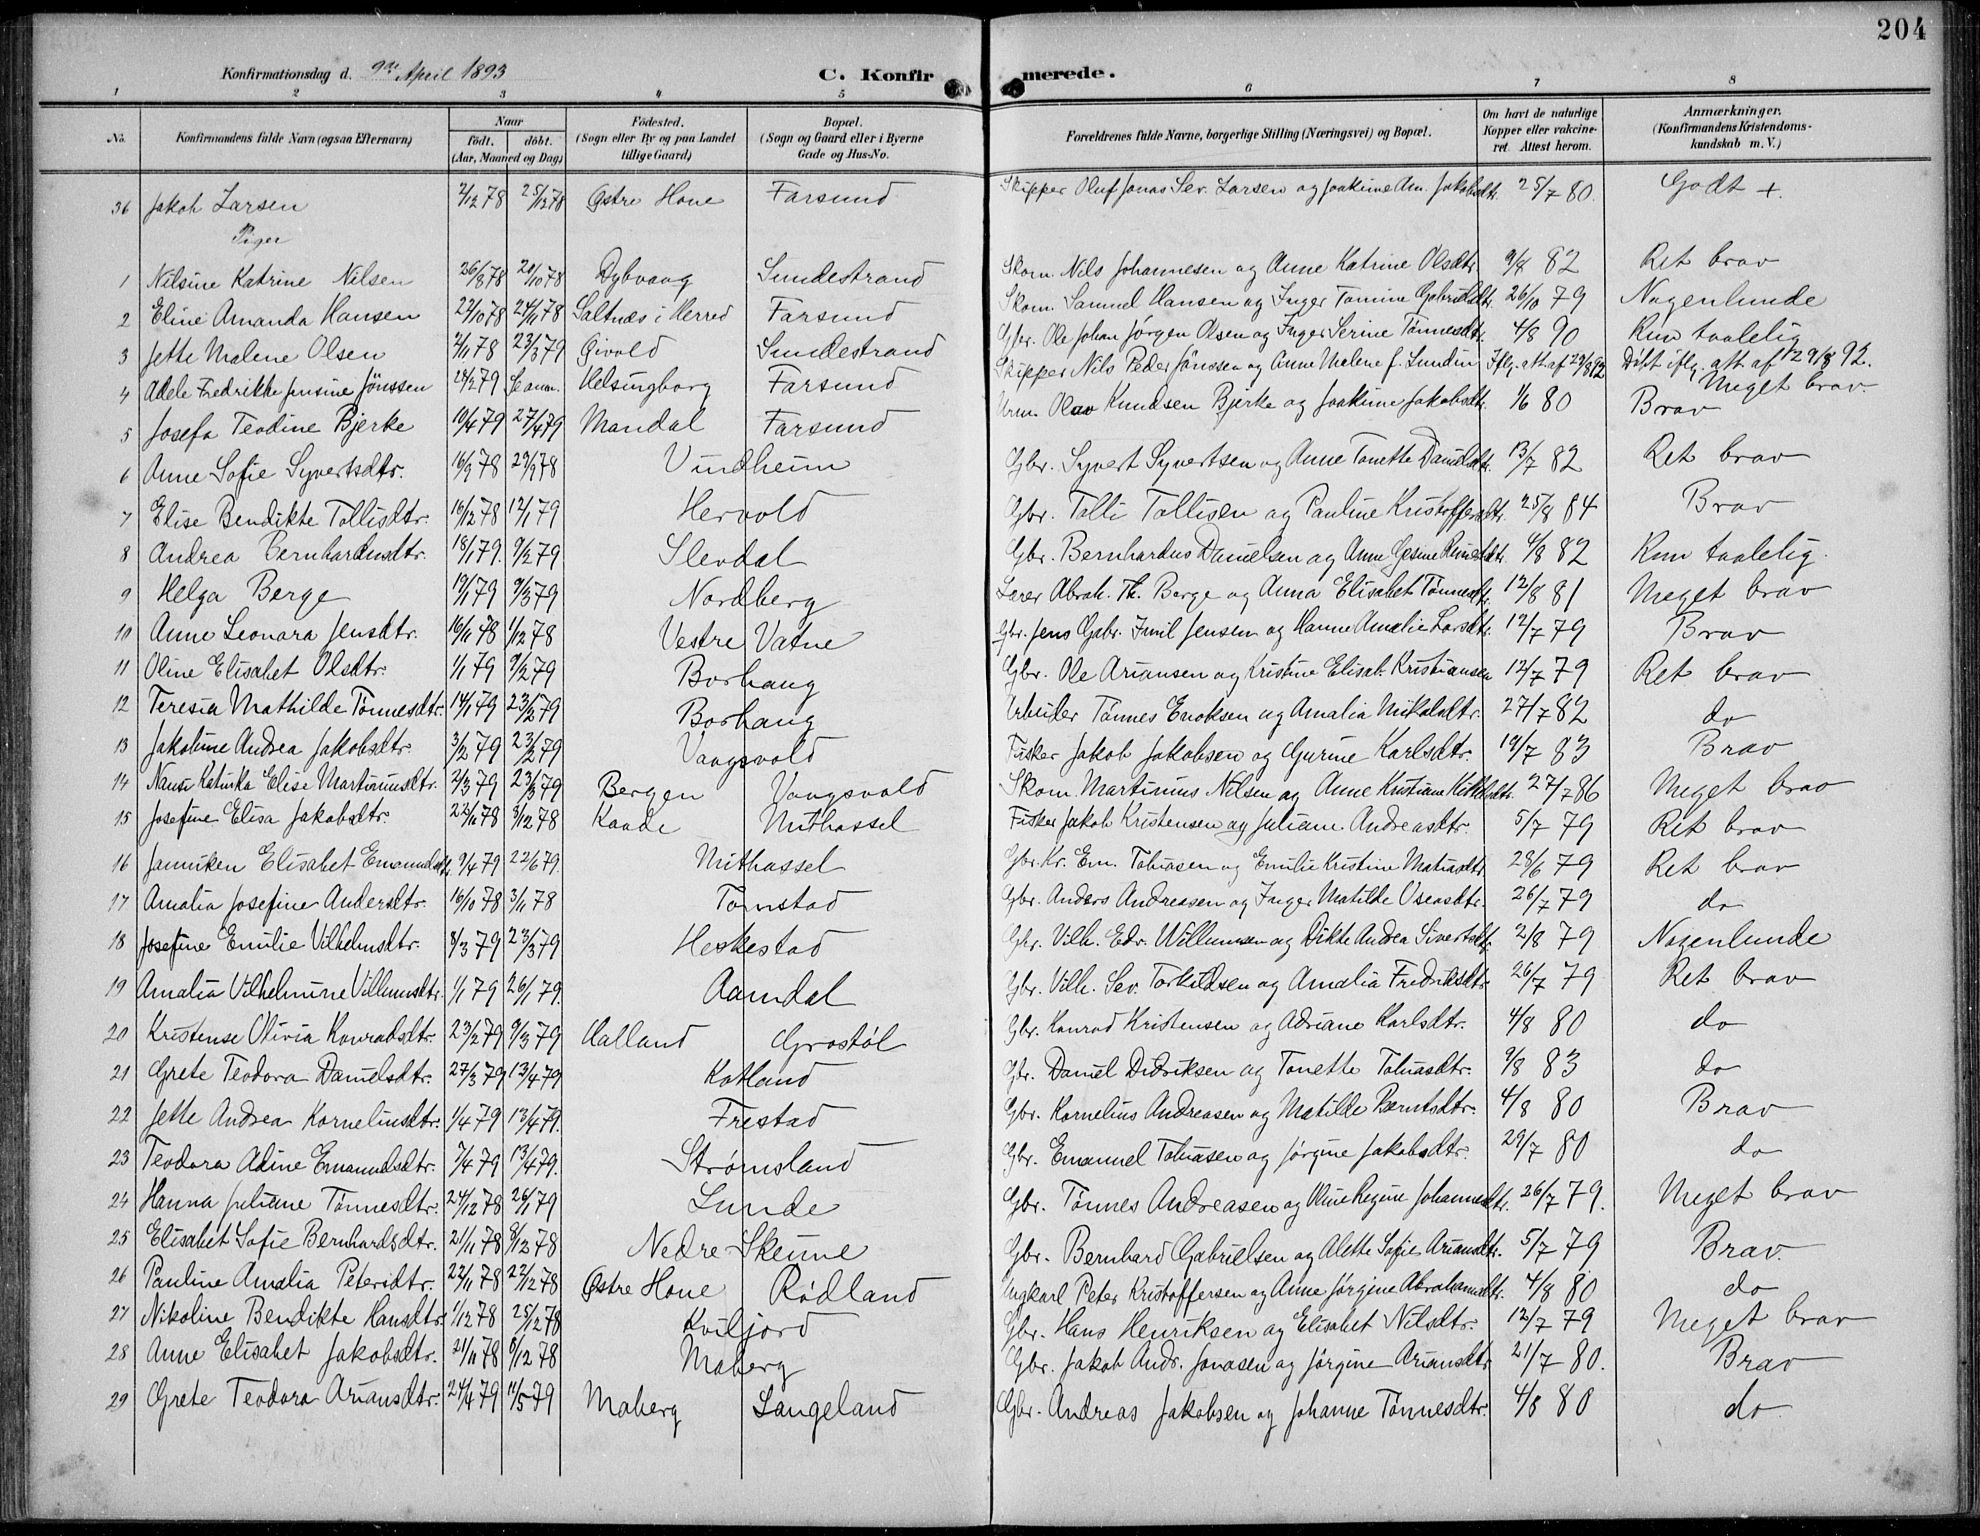 204
Konfirmationsdag d. 9de April 1893 C. Konfirmerede.
1 2 3 4 5 6 7 8
No. Konfirmandens fulde Navn (ogsaa Efternavn) Naar født. døbt. (Aar, Maaned og Dag) Fødested. (Sogn eller By og paa Landet tillige Gaard) Bopæl. (Sogn og Gaard eller i Byerne Gade og Hus-No. Forældrenes fulde Navne, borgerlige Stilling (Næringsvei) og Bopæl. Om havt de naturlige Kopper eller vakcineret. Attest herom. Anmærkninger. (Konfirmandens Kristendomskundskab m. V.)
36 Jakob Larsen 2/12 78 25/12 78 Østre Hone Farsund Skipper Oluf Jonas Sev. Larsen og Joakime Am. Jakobsdtr. 25/7 80. Godt +.
Piger
1 Nilsine Katrine Nilsen 26/8 78 20/10 78 Dybvaag Sundestrand Skom. Nils Johannesen og Anne Katrine Olsdtr. 9/8 82 Ret brav
2 Eline Amanda Hansen 22/10 78 24/11 78 Saltnæs i Herred Farsund Skom. Samuel Hansen og Inger Tomine Gabrielsdtr. 26/10 79 Nogenlunde
3 Jette Malene Olsen 2/11 78 23/3 79 Givold Sundestrand Gbr. Ole Johan Jørgen Olsen og Inger Serine Tønnesdtr. 4/8 90 Kun taalelig
4 Adele Fredrikke Jensine Jönssen 24/2 79 Se anm. Helsingborg Farsund Skipper Nils Peder Jönssen og Anne Malene f. Lundin Iflg. att. af 29/8 92 Døbt iflg. att. af 29/8 92. Meget brav.
5 Josefa Teodine Bjerke 10/4 79 27/4 79 Mandal Farsund Urm. Olav Knudsen Bjerke og Joakime Jakobsdtr. 1/6 80 Brav
6 Anne Sofie Syvertsdtr. 16/9 78 29/9 78 Vindheim Gbr. Syvert Syvertsen og Anne Tonette Danielsdtr. 13/7 82 Ret brav
7 Elise Bendikte Tollisdtr. 16/12 78 12/1 79 Hervold Gbr. Tolli Tollisen og Pauline Kristoffersdtr. 25/8 84 Brav
8 Andrea Bernhardusdtr. 18/1 79. 9/2 79 Slevdal Gbr. Bernhardus Danielsen og Anne Gesine Reinertsdtr. 4/8 82 Kun taalelig.
9 Helga Berge 19/1 79 9/3 79 Nordberg Lærer Abrah. Th. Berge og Anna Elisabet Tønnesdtr. 12/8 81 Meget brav
10 Anne Leonara Jensdtr. 16/11 78 1/12 78 Vestre Vatne Gbr. Jens Gabr. Emil Jensen og Hanne Amalie Larsdtr. 12/7 79 Brav
11 Oline Elisabet Olsdtr. 1/1 79 9/2 79 Borhaug Gbr. Ole Ariansen og Kristine Elisab. Kristiansen 12/7 79 Ret brav
12 Teresia Mathilde Tønnesdtr. 14/1 79 23/2 79 Borhaug Arbeider Tönnes Enoksen og Amalia Mikalsdtr. 27/7 82 do
13 Jakobine Andrea Jakobsdtr. 3/2 79 23/2 79 Vaagsvold Fisker Jakob Jakobsen og Gurine Karlsdtr. 19/7 83 Brav
14 Nausi Katinka Elise Martiniusdtr. 2/3 79 23/3 79 Bergen Vaagsvold Skom. Martinius Nilsen og Anne Kristiane Kittelsdtr. 27/7 86 Meget brav
15 Josefine Elisa Jakobsdtr. 22/11 78 3/12 78 Kaade Mithassel Fisker Jakob Kristensen og Juliane Andreasdtr. 5/7 79 Ret brav
16 Janniken Elisabet Emanuelsdtr. 9/4 79 22/6 79. Mithassel Gbr. Kr. Em. Tobiasen og Emilie Kristine Matiasdtr. 28/6 79 Ret brav
17 Amalia Josefine Andersdtr. 16/10 78 3/11 78 Tomstad Gbr. Anders Andreasen og Inger Matilde Oseasdtr. 26/7 79 do
18 Josefine Emilie Vilhelmsdtr. 8/3 79 23/3 79 Heskestad Gbr. Vilh. Edv. Willumsen og Dikte Andrea Sivertsdtr. 2/8 79 Nogenlunde
19 Amalia Vilhelmine Villumsdtr. 1/1 79 26/1 79. Aamdal Gbr. Vilh. Sev. Torkildsen og Amalia Fredriksdtr. 26/7 79 Ret brav
20 Kristense Olivia Konradsdtr. 23/2 79 9/3 79 Halland Grostøl Gbr. Konrad Kristensen og Adriane Karlsdtr. 4/8 80 do
21 Grete Teodora Danielsdtr. 27/3 79 13/4 79 Kotland Gbr. Daniel Didriksen og Tonette Tobiasdtr. 9/8 83 do
22 Jette Andrea Korneliusdtr. 1/4 79 13/4 79. Frestad Gbr. Kornelius Andreasen og Matilde Berntsdtr. 4/8 80 Brav
23 Teodora Adine Emanuelsdtr. 7/4 79 13/4 79. Strømsland Gbr. Emanuel Tobiasen og Jörgine Jakobsdtr. 29/7 80 do
24 Hanna Juliane Tønnesdtr. 24/12 78 26/1 79 Lunde Gbr. Tønnes Andreasen og Oline Regine Johannesdtr. 26/7 79. Meget brav
25 Elisabet Sofie Bernhardsdtr. 21/11 78 8/12 78 Nedre Skeime Gbr. Bernhard Gabrielsen og Alette Sofie Ariansdtr. 5/7 79 Brav
26 Pauline Amalia Petersdtr. 22/11 78 22/12 78 Østre Hone Rødland Ungkarl Peter Kristoffersen og Anne Jørgine Abrahamsdtr. 4/8 80 do
27 Nikoline Bendikte Hansdtr. 1/12 78 25/12 78 Kviljord Gbr. Hans Henriksen og Elisabet Nilsdtr. 12/7 79 Meget brav
28 Anne Elisabet Jakobsdtr. 21/11 78 8/12 78 Maberg Gbr. Jakob Andr. Jonasen og Jørgine Ariansdtr. 21/7 80. Brav
29 Grete Teodora Ariansdtr. 24/4 79 11/5 79 Maberg Langeland Gbr. Andreas Jakobsen og Johanne Tönnesdtr. 4/8 80 do